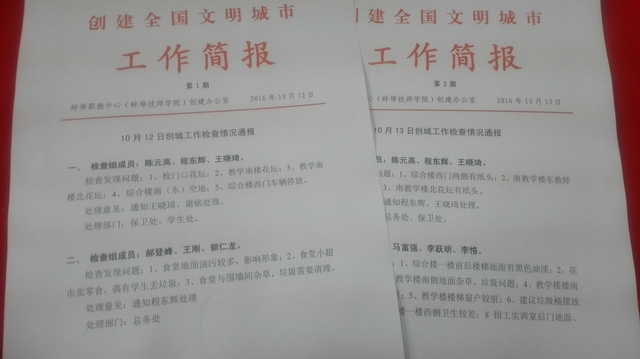 创建全国文明城市
工作简报
第1期
蚌埠职教中心（蚌埠技师学院）创建办公室 2016年10月12日
10月12日创城工作检查情况通报
一、检查组成员：陈元高、程东辉、王晓琦。
检查发现问题：1、校门口花坛；2、教学南楼花坛；3、教学南
楼北花坛；4、综合楼南（东）空地；5、综合楼西门车辆停放。
处理意见：通知王晓琦、谢铭处理。
处理部门：保卫处、学生处。
二、检查组成员：郝登峰、王刚、郭仁龙。
检查发现问题：1、食堂地面油污较多，影响形象；2、食堂小超
市卖零食，偶有学生丢垃圾；3、食堂与围墙间杂草，垃圾需要清理。
处理意见：通知程东辉处理
处理部门：总务处
创建全国文明城市
工作简报
第2期
心（蚌埠技师学院）创建办公室 2016年10月13日
10月13日创城工作检查情况通报
员：陈元高、程东辉、王晓琦。
问题：1、综合楼西门两侧有纸头；2、南教学楼东教师
；3、南教学楼北花坛有纸头。
通知程东辉、王晓琦处理。
总务处、保卫处。
马富强、李跃明、李恪。
：1、综合楼一楼前后楼梯地面有黑色油渍；2、花
教学楼南侧地面杂草，垃圾问题；4、教学楼楼南
；5、教学楼楼梯窗户较脏；6、建议垃圾桶摆放
一楼西侧卫生较差；8 钳工实训室后门地面、